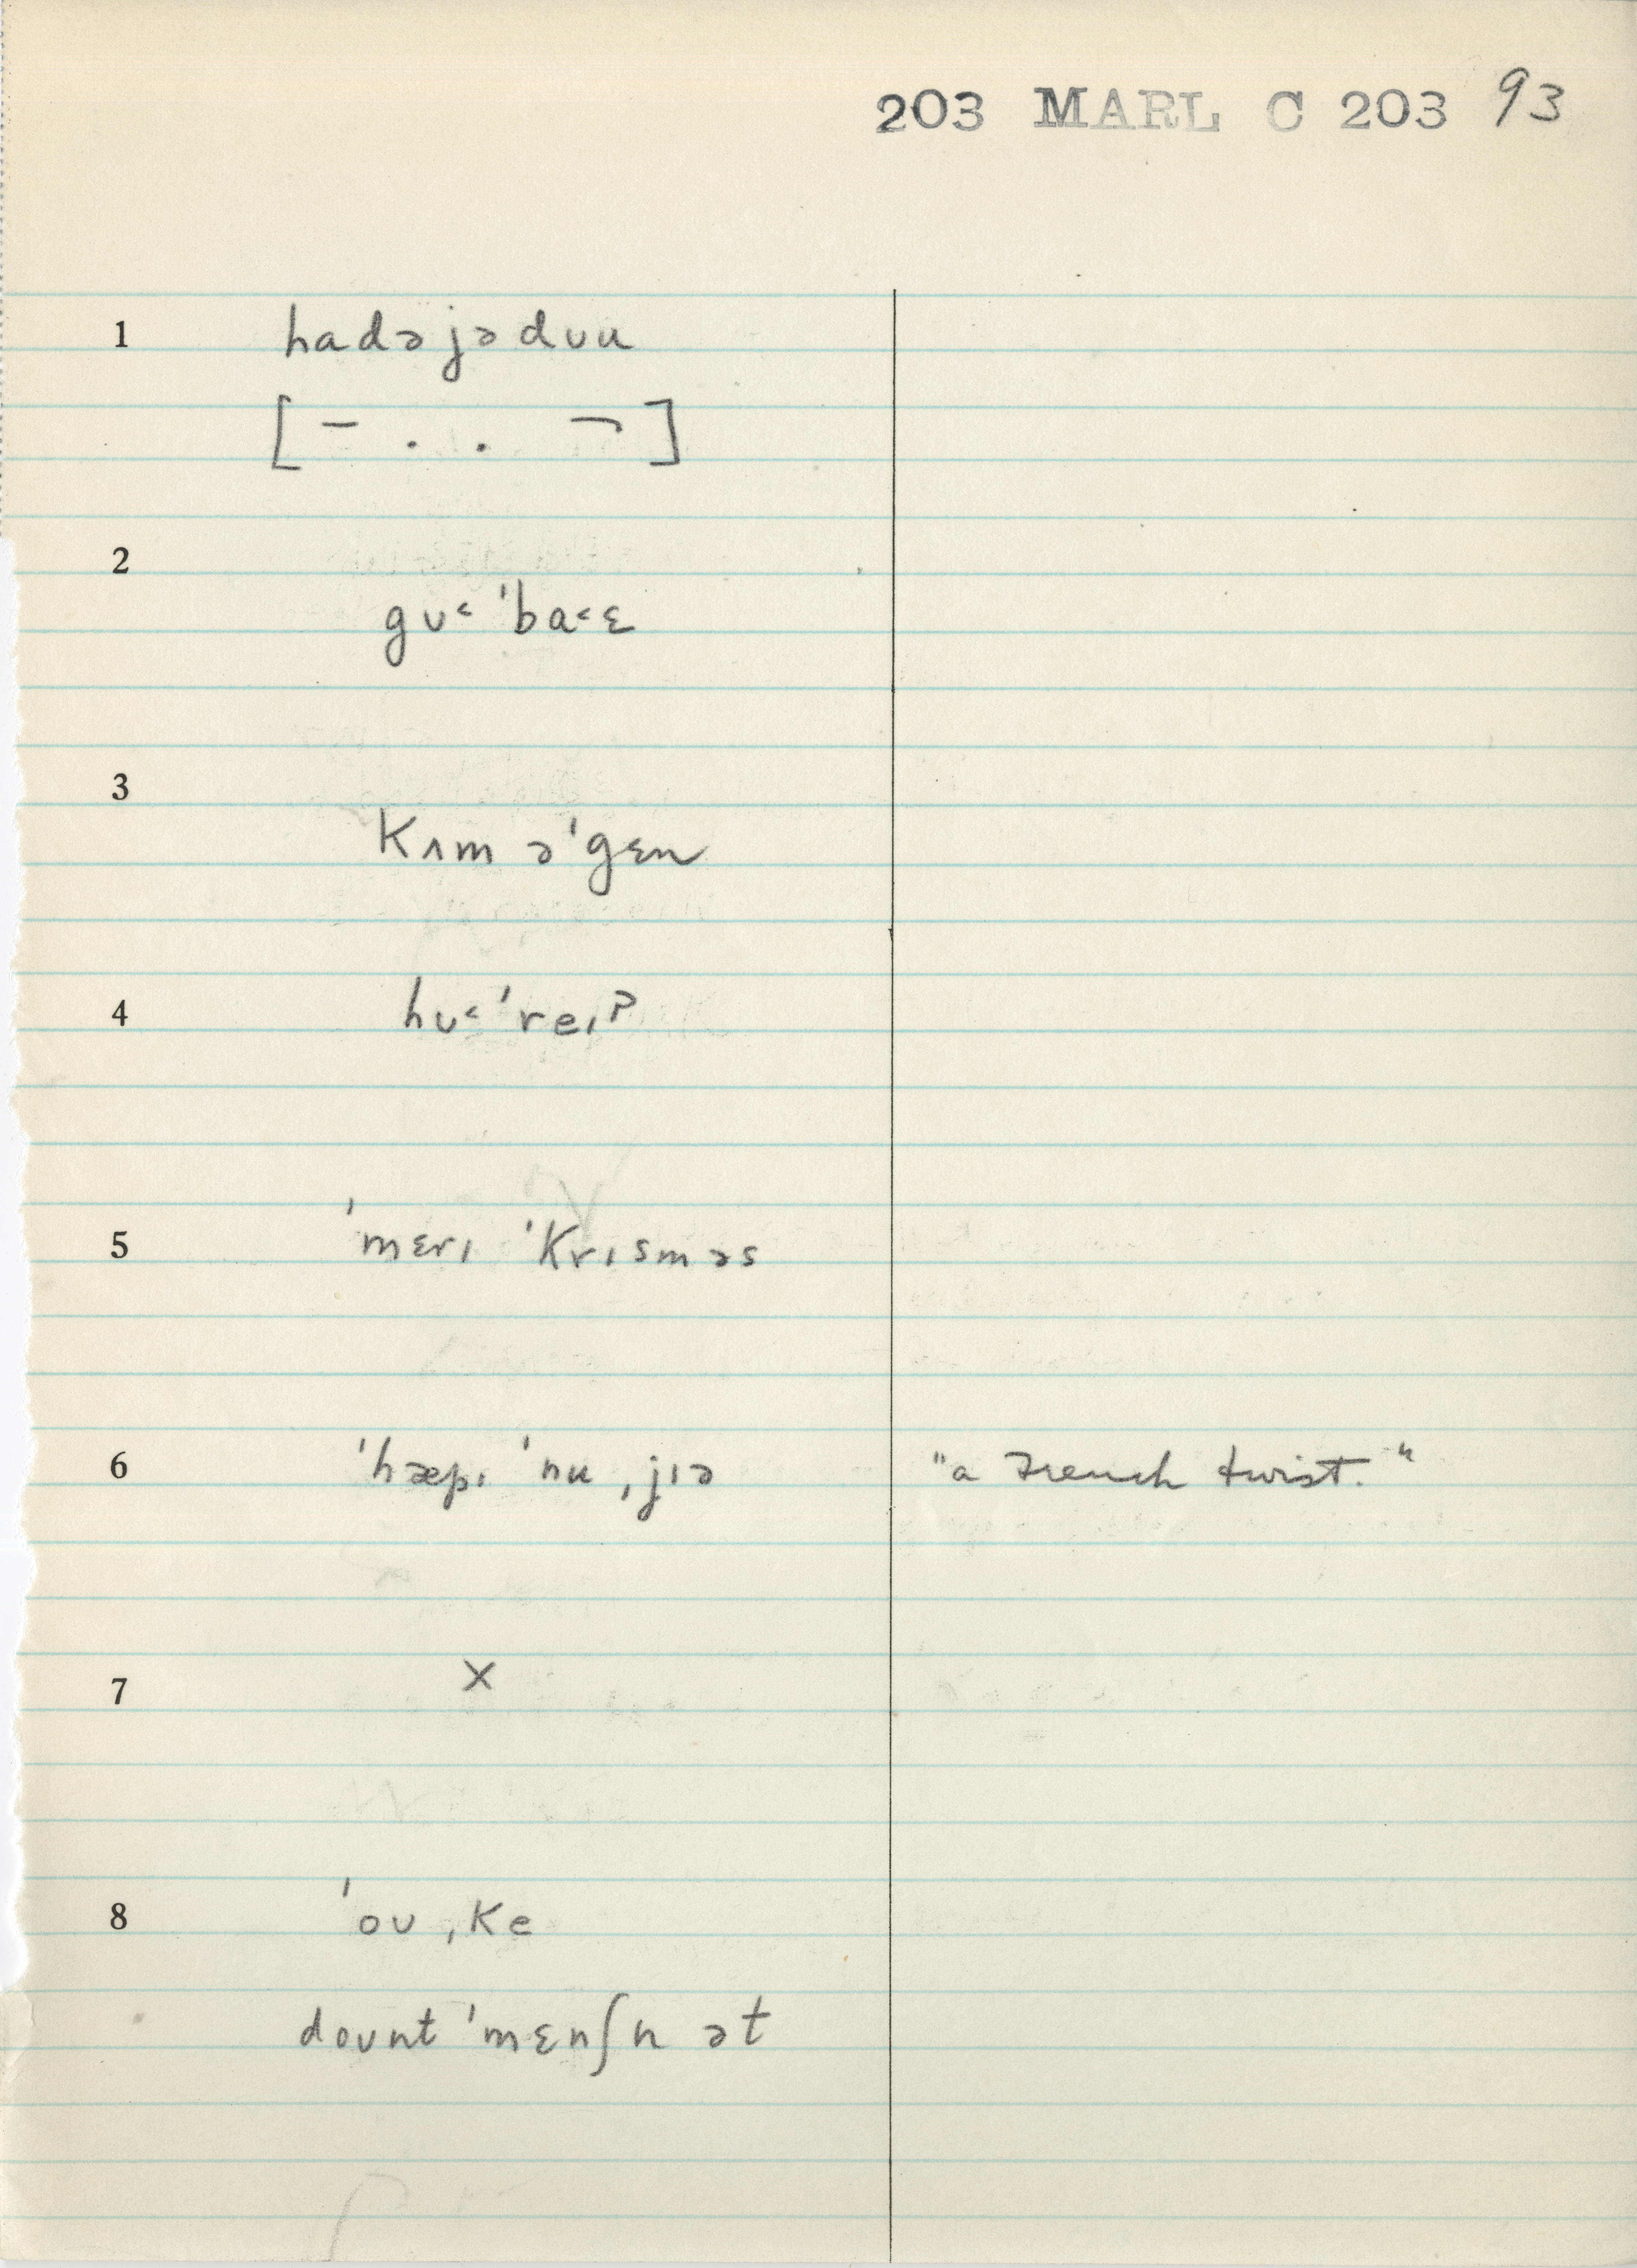 203 MARL C 203 93
1 hadə jə dʊu
[– . . ¬]
2
gʊ˂ ˈba˂ɛ
3
kʌm əˈgɛn
4 hʊ˂ ˈreɪʔ
5 ˈmɛrɪ ˈkrɪsməs
6 ˈhæpɪ ˈnu ˌjɪə "a French twist."
7 ×
8 ˈoʊ ˌke
doʊnt ˈmɛnʃn ət